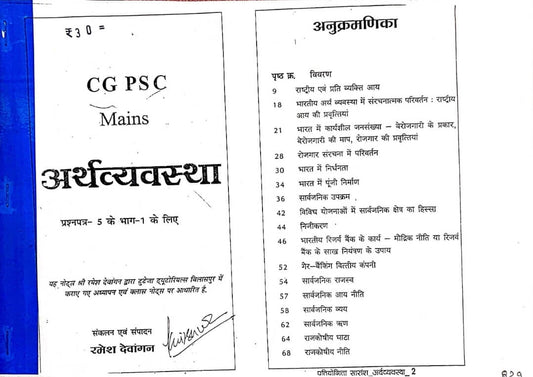 ₹30=
CG PSC
Mains
अर्थव्यवस्था
प्रश्नपत्र- 5 के भाग-1 के लिए
यह नोट्स श्री रमेश देवांगन द्वारा टुडेजा ट्यूटोरियल्स बिलासपुर में
कराए गए अध्यापन एवं क्लास नोट्स पर आधारित है.
संकलन एवं संपादन
रमेश देवांगन
अनुक्रमणिका
पृष्ठ क्र. विवरण
9 राष्ट्रीय एवं प्रति व्यक्ति आय
18 भारतीय अर्थ व्यवस्था में संरचनात्मक परिवर्तन : राष्ट्रीय
आय की प्रवृत्तियां
21 भारत में कार्यशील जनसंख्या – बेरोजगारी के प्रकार,
बेरोजगारी की माप, रोजगार की प्रवृत्तियां
28 रोजगार संरचना में परिवर्तन
30 भारत में निर्धनता
34 भारत में पूंजी निर्माण
36 सार्वजनिक उपक्रम
42 विविध योजनाओं में सार्वजनिक क्षेत्र का हिस्सा
44 निजीकरण
46 भारतीय रिजर्व बैंक के कार्य – मौद्रिक नीति या रिजर्व
बैंक के साख नियंत्रण के उपाय
52 गैर-बैंकिंग वित्तीय कंपनी
54 सार्वजनिक राजस्व
57 सार्वजनिक आय नीति
58 सार्वजनिक व्यय
62 सार्वजनिक ऋण
64 राजकोषीय घाटा
68 राजकोषीय नीति
प्रतियोगिता सारांश_अर्थव्यवस्था_ 2